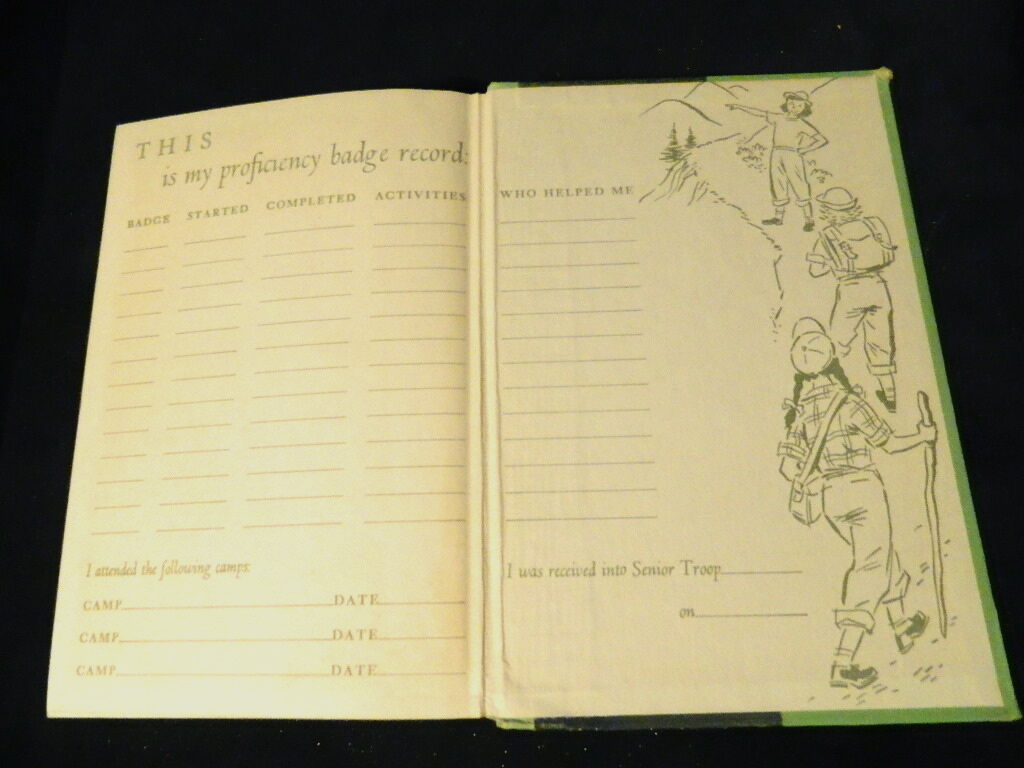 THIS
is my proficiency badge record:
BADGE STARTED COMPLETED ACTIVITIES WHO HELPED ME
I attended the following camps:
CAMP DATE
CAMP DATE
CAMP DATE
I was received into Senior Troop
on